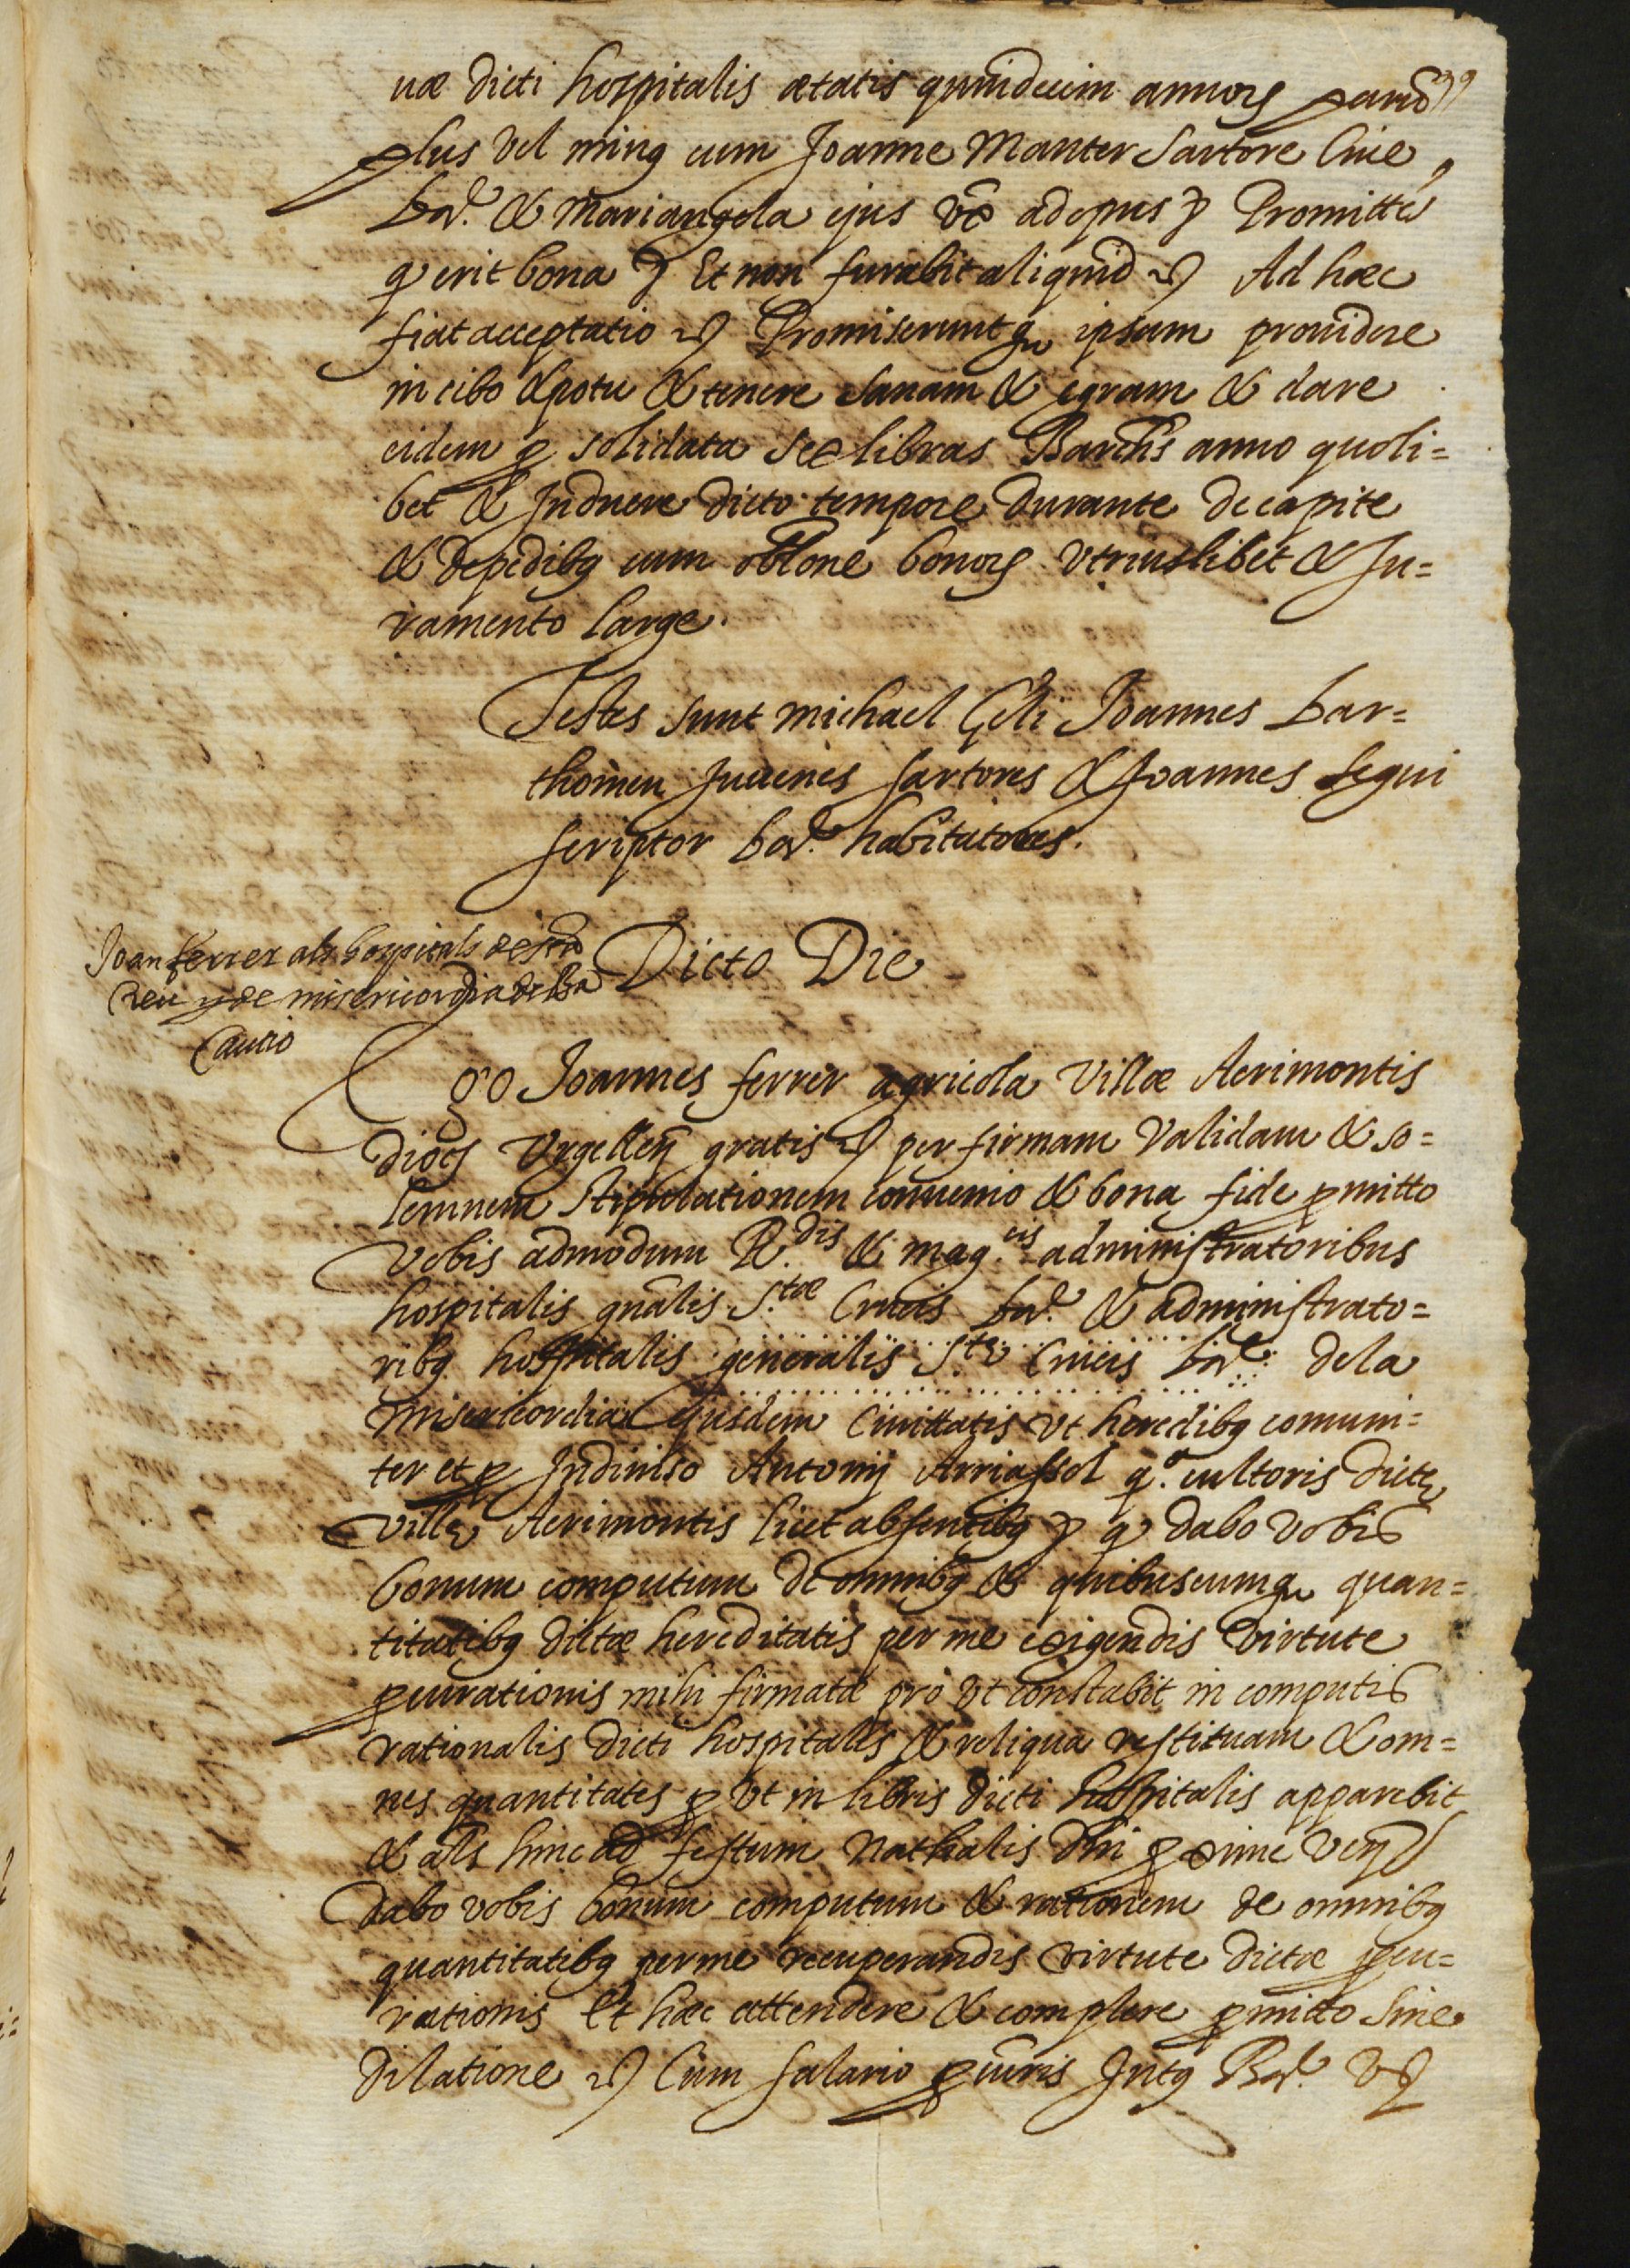 uæ dicti hospitalis ætatis quindecim annoꝝ parũ
plus vel minꝰ cum Joanne Manter Sartore Cive
bar.ᵉ & Mariangela ejus vẽ ad opus &c Promitteꝰ
q̄ erit bona &c Et non furabit aliquid &c Ad hæc
fiat acceptatio &c Promiseruntqꝫ ipsam providere
in cibo & potu & tenere sanam & egram & dare
eidem ꝑ solidata sex libras Barchĩs anno quoli=
bet & Induere dicto tempore durante de capite
& de pedibꝰ cum obl̃one bonoꝝ utriuslibet & Ju=
ramento large.
Testes sunt Michael Geli Joannes Bar=
thomeu Juvenes sartores & Joannes Segui
scriptor bar.ᵉ habitatores.
Joan ferrer als hospitals de sta
Creu y de misericordia de Ba
Cautio
Dicto Die
Ego Joannes ferrer agricola Villæ Acrimontis
diocs Urgelleñ gratis &c per firmam validam & so=
lemnem stipulationem convenio & bona fide ꝓmitto
vobis admodum R.dis & mag.cis administratoribus
hospitalis gñalis S.tæ Crucis bar.ᵉ & administrato=
ribꝰ hospitalis generalis S.te Crucis bar.ᵉ dela
misericordia ejusdem Civittatis ut heredibꝰ comuni=
ter et ꝓ Indiviso Antonij Arriassol q.º cultoris dictę
villę Acrimontis licet absentibꝰ &c q̄ dabo vobis
bonum computum de omnibꝰ & quibuscumqꝫ quan=
titatibꝰ dictæ hereditatis per me exigendis virtute
ꝓcurationis mihi firmatæ pro ut constabit in computis
rationalis dicti hospitalis & reliqua restituam & om=
nes quantitates ꝓ ut in libris dicti hospitalis apparebit
& als hinc ad festum Nathalis Dñi ꝓxime veñ
dabo vobis bonum computum & rationem de omnibꝰ
quantitatibꝰ per me recuperandis virtute dictæ ꝓcu=
rationis Et hæc attendere & complere ꝓmitto sine
dilatione &c Cum salario ꝓcuris Intꝰ Bar.ᵉ &c